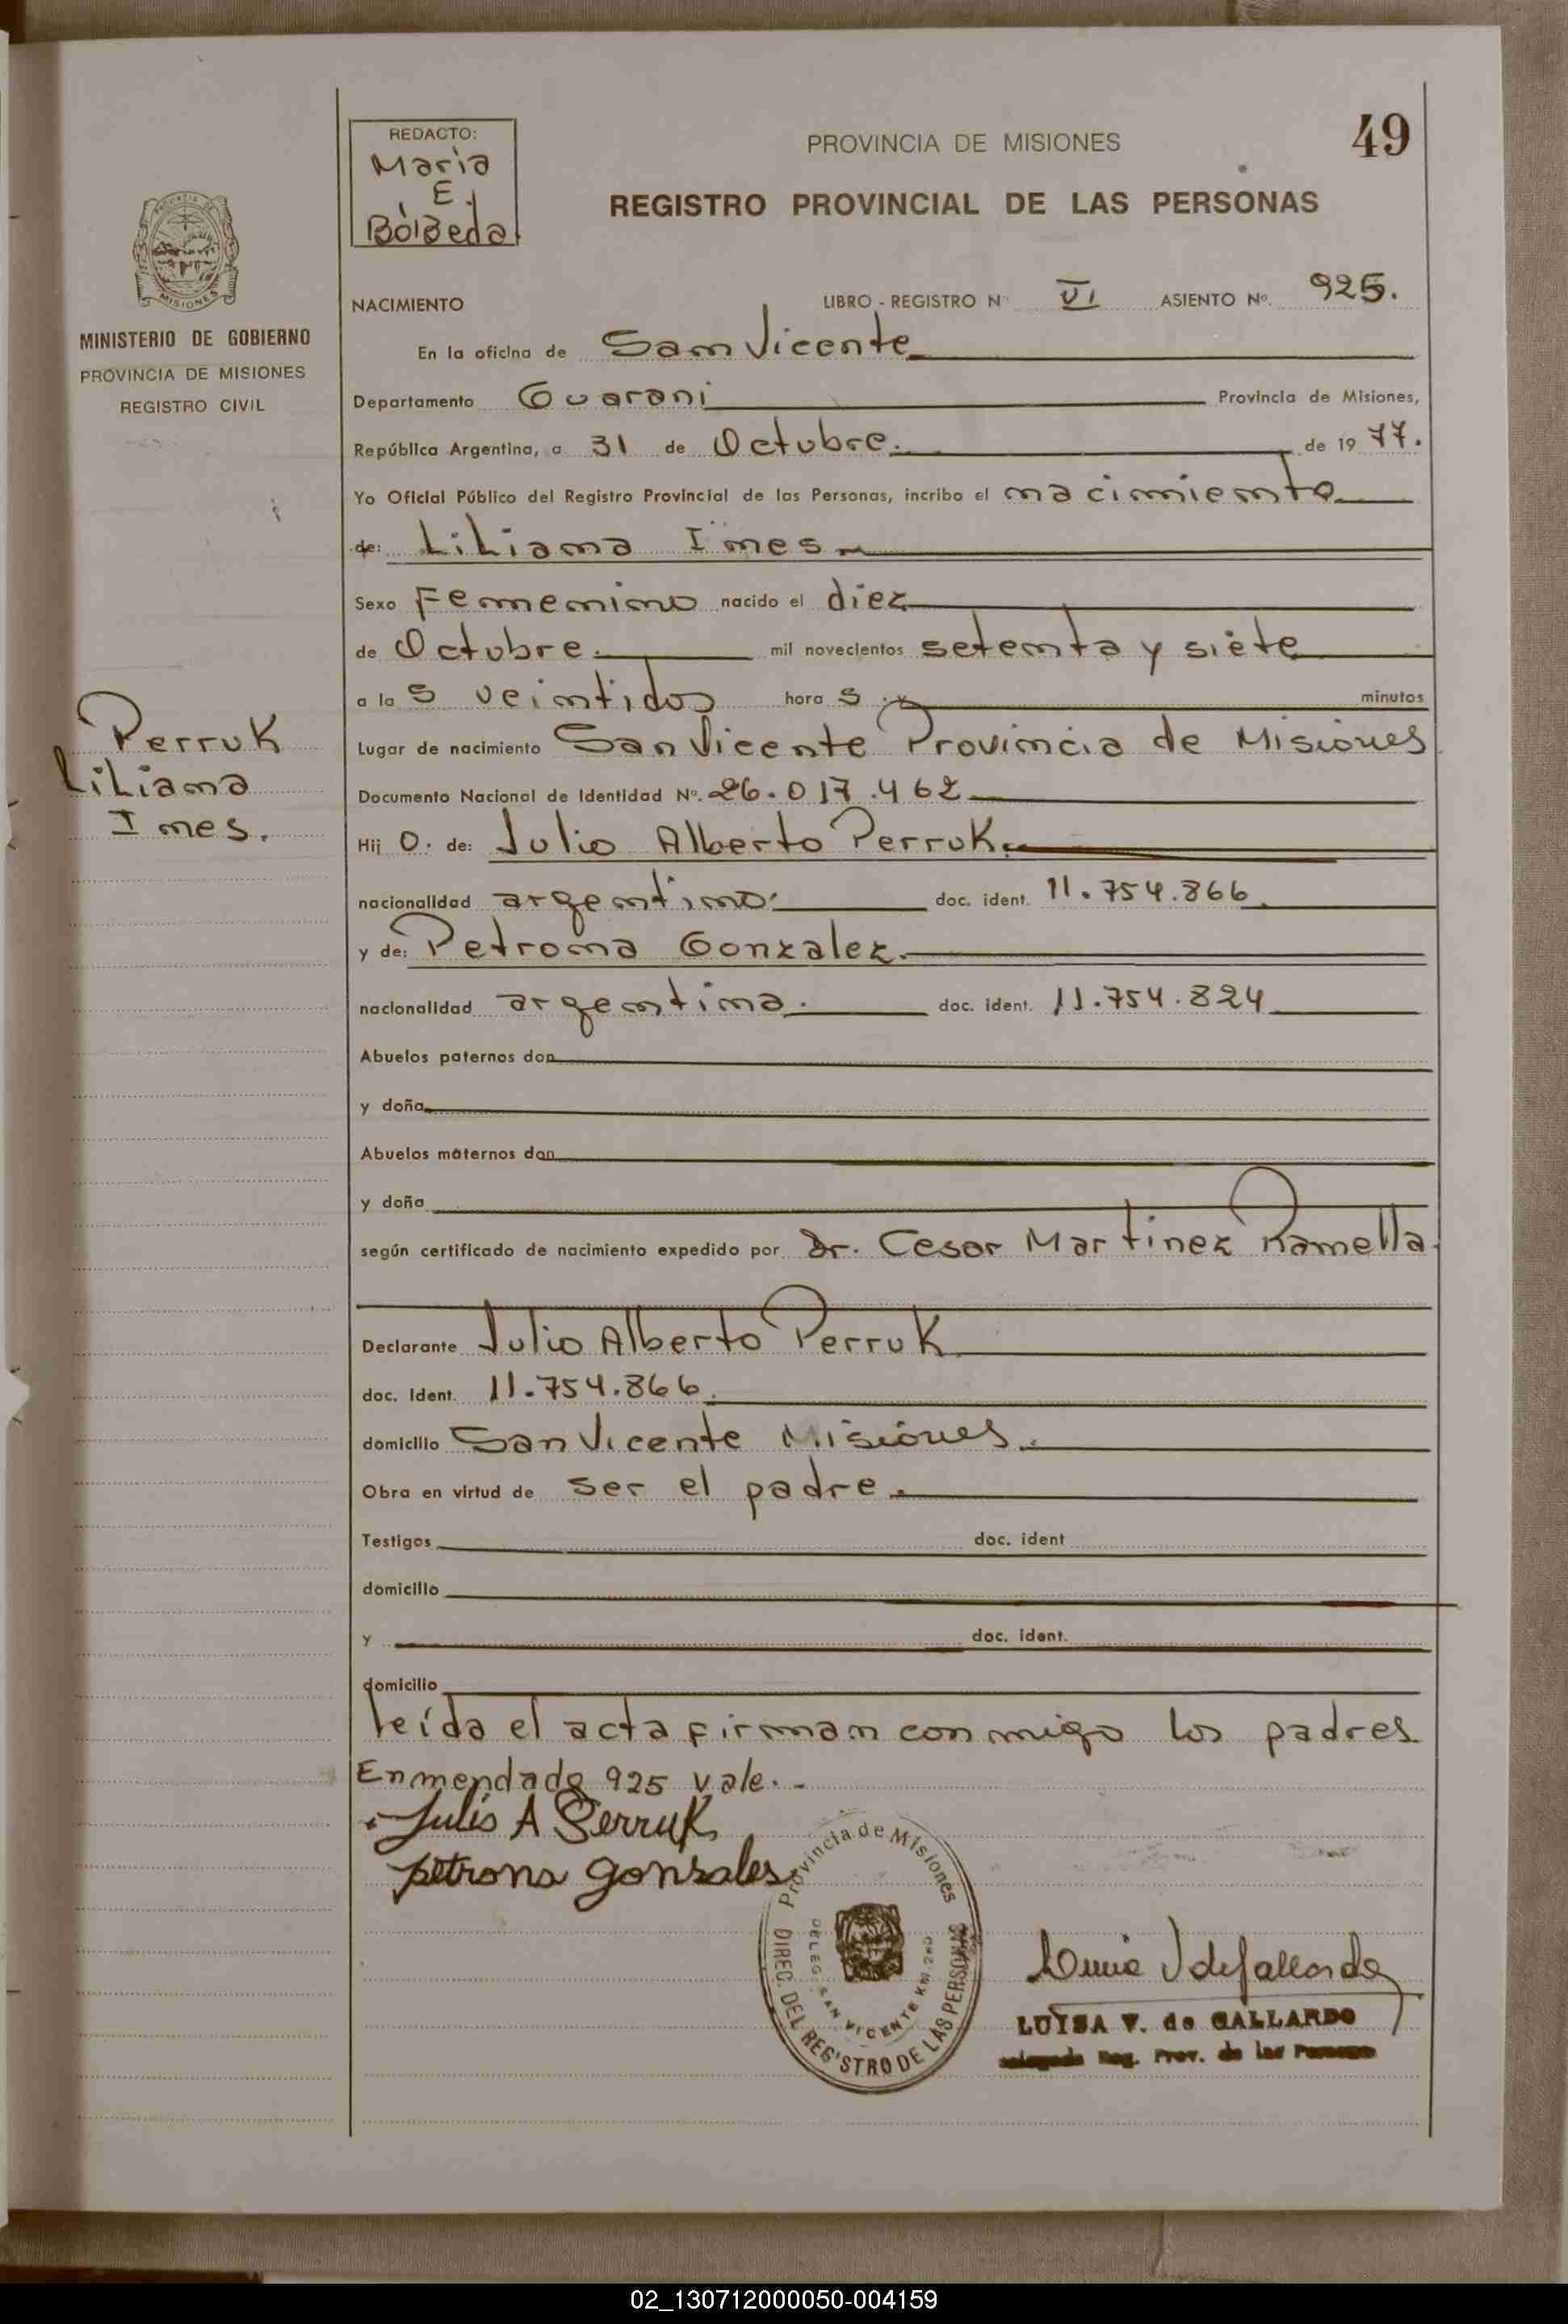 49
REDACTO:
Maria
E.
Boibeda
PROVINCIA DE MISIONES
REGISTRO PROVINCIAL DE LAS PERSONAS
MISIONES
MINISTERIO DE GOBIERNO
PROVINCIA DE MISIONES
REGISTRO CIVIL
NACIMIENTO LIBRO - REGISTRO Nº VI ASIENTO Nº. 925.
En la oficina de San Vicente
Departamento Guarani Provincia de Misiones,
República Argentina, a 31 de Octubre. de 1977.
Yo Oficial Público del Registro Provincial de las Personas, incribo el nacimiento
de: Liliana Ines
Sexo Femenino nacido el diez
de Octubre. mil novecientos setenta y siete
a las veintidos horas y minutos
Perruk
Liliana
Ines.
Lugar de nacimiento San Vicente Provincia de Misiones
Documento Nacional de Identidad Nº. 26.017.462
Hijo. de: Julio Alberto Perruk.
nacionalidad argentino. doc. ident. 11.754.866
y de: Petrona Gonzalez.
nacionalidad argentina. doc. ident. 11.754.824
Abuelos paternos don
y doña
Abuelos maternos don
y doña
según certificado de nacimiento expedido por Dr. Cesar Martinez Ramella
Declarante Julio Alberto Perruk
doc. Ident. 11.754.866.
domicilio San Vicente Misiones.
Obra en virtud de ser el padre.
Testigos doc. ident
domicilio
y doc. ident.
domicilio
leída el acta firman conmigo los padres
Enmendado 925 vale.-
Julio A Perruk
petrona gonzales
Provincia de Misiones
DIREC. DEL REGISTRO DE LAS PERSONAS
DELEG. SAN VICENTE KM.
LUISA V. de GALLARDO
Reg. Prov. de las Personas
02_130712000050-004159